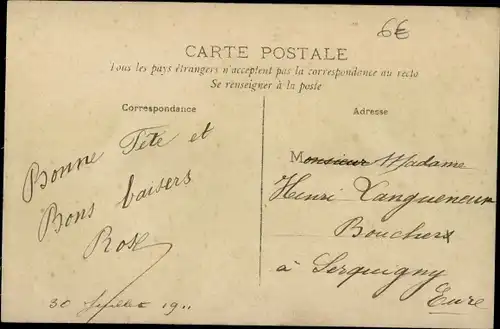 6€
CARTE POSTALE
Tous les pays étrangers n'acceptent pas la correspondance au recto
Se renseigner à la poste
Correspondance
Bonne Fête et
Bons baisers
Rose
30 Juillet 1911
Adresse
Monsieur Madame
Henri Langueneur
Boucher
à Serquigny
Eure